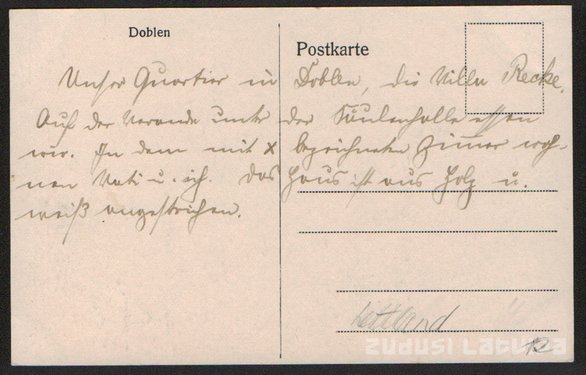 Doblen
Postkarte
Unser Quartier in Doblen, die Villa Recke.
Auf der Veranda unter der Säulenhalle essen
wir. In dem mit x bezeichneten Zimmer woh-
nen Vati u. ich. Das Haus ist aus Holz u.
weiß angestrichen.
Lettland
ZUDUSĪ LATVIJA
12